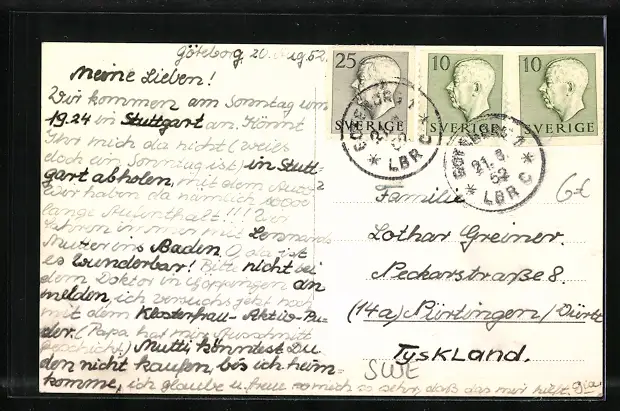 Göteborg 20. Aug. 52.
Meine Lieben!
Wir kommen am Sonntag um
19.24 in Stuttgart an. Könnt
Ihr mich da nicht (weils
doch ein Sonntag ist) in Stutt-
gart abholen, mit dem Auto?
Wir haben da nämlich 1000
lange Aufenthalt!!! Wir
immer mit
Mutter ins Baden. O, da ist
es wunderbar! Bitte nicht bei
dem Doktor in Göppingen an
melden, ich versuchs jetzt noch
mit dem Klosterfrau-Aktiv-Pu-
der. (Papa hat mir Ausschnitt
geschickt) Mutti, könntest Du
den nicht kaufen, bis ich heim-
komme, ich glaube u. freue mich so sehr, daß das mir hilft.
25
SVERIGE
10
SVERIGE
10
SVERIGE
GÖTEBORG 1
LBR C
GÖTEBORG 1
21. 8.
52
LBR C
6€
Familie
Lothar Greiner.
Neckarstraße 8.
(14a) Nürtingen/Württ
Tyskland.
SWE